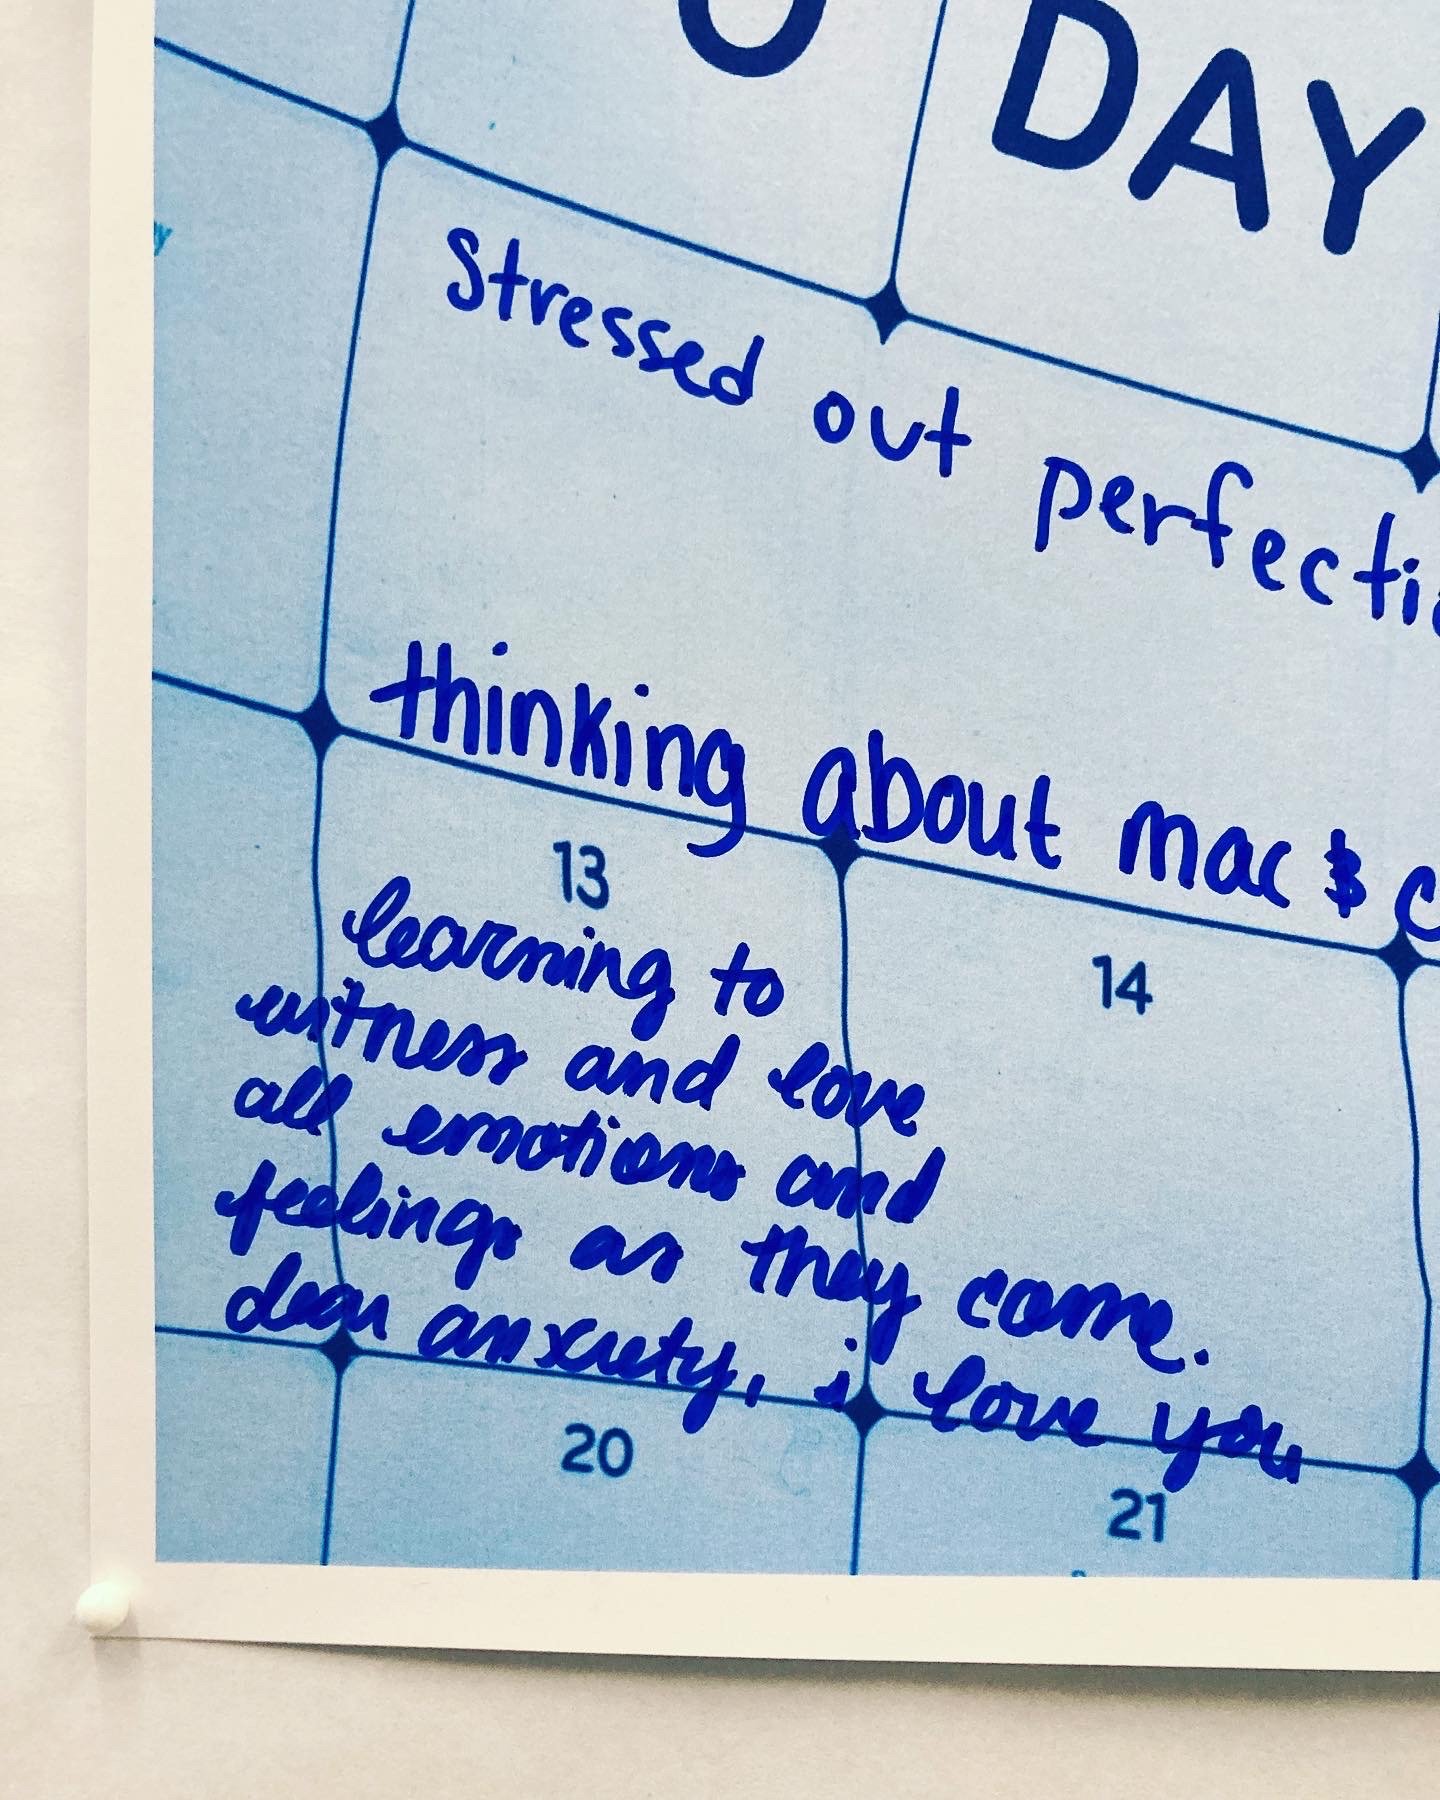 DAY
Stressed out perfecti
thinking about mac & c
13
14
learning to
witness and love
all emotions and
feelings as they come.
dear anxiety, i love you
20
21